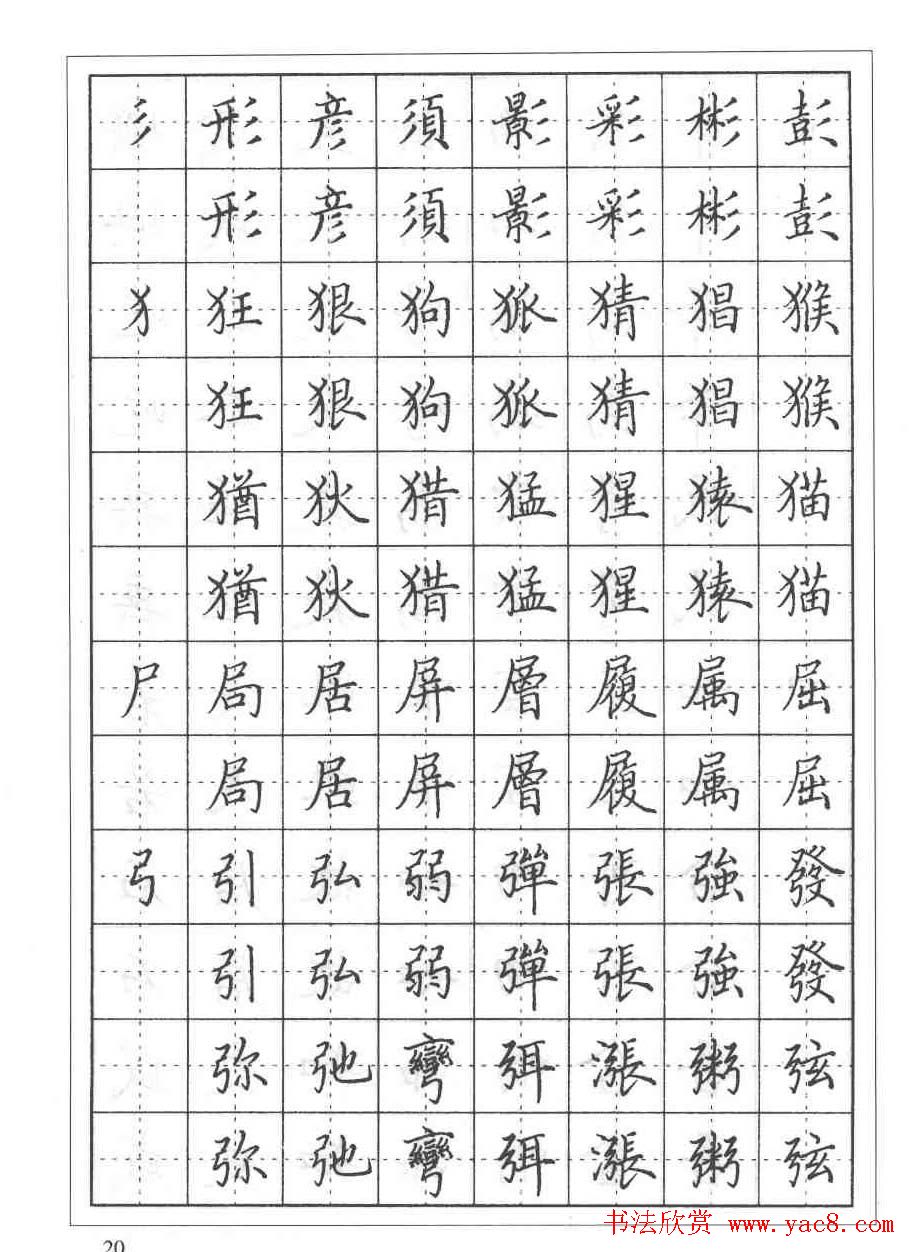 彡 形 彦 須 影 彩 彬 彭
形 彦 須 影 彩 彬 彭
犭 狂 狠 狗 狐 猜 猖 猴
狂 狠 狗 狐 猜 猖 猴
猶 狄 猎 猛 猩 猿 猫
猶 狄 猎 猛 猩 猿 猫
尸 局 居 屏 層 履 属 屈
局 居 屏 層 履 属 屈
弓 引 弘 弱 彈 張 強 發
引 弘 弱 彈 張 強 發
弥 弛 彎 弭 漲 粥 弦
弥 弛 彎 弭 漲 粥 弦
书法欣赏 www.yac8.com
20